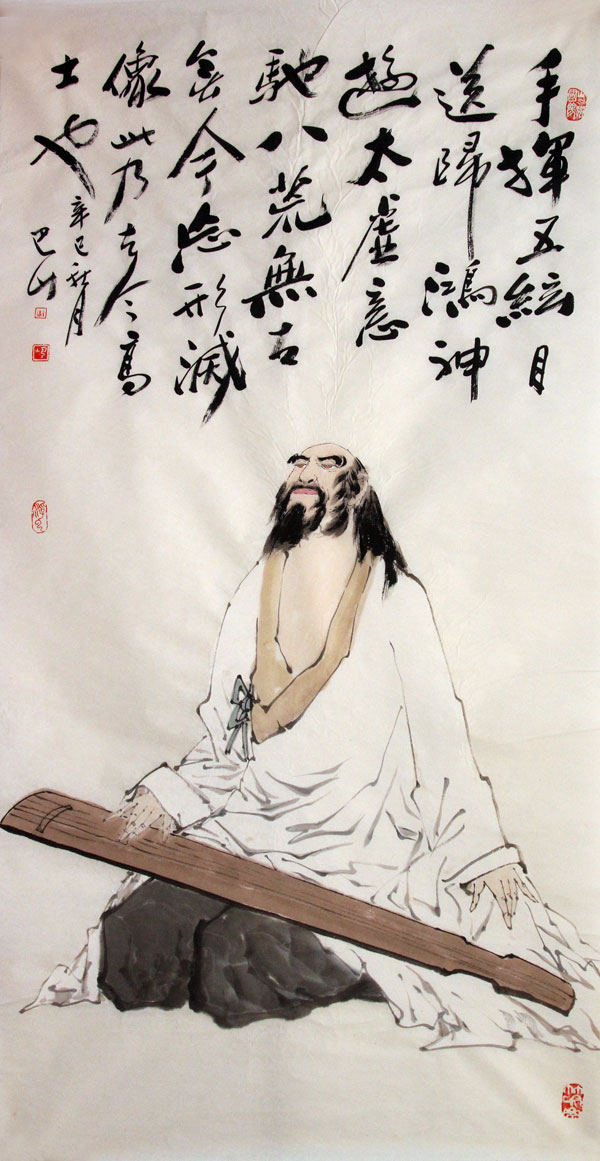 手揮五絃目
送歸鴻神
遊太虛意
馳八荒無古
無今忘形滅
像此乃古今高
士也
辛巳秋月
巴山